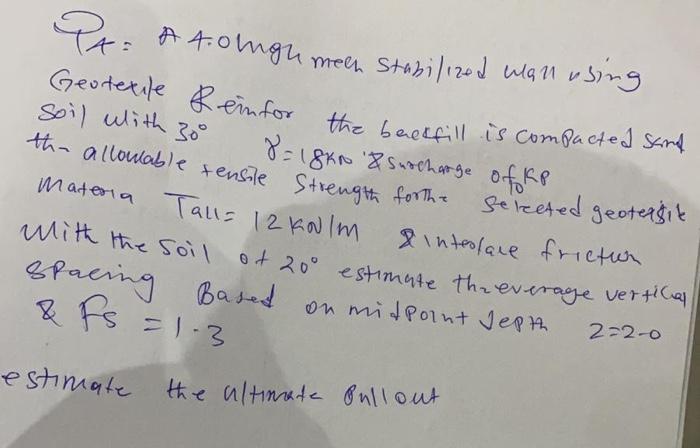 A 4.0 high mech stabilized wall using
Geotexile Reinfor the backfill is compacted sand
soil with 30° γ=18kN & surcharge of KP
the allowable tensile strength for the selected geotexile
materia Tall = 12 kN/m & interface friction
with the soil of 20° estimate the everage vertical
spacing Based on midpoint depth z=2-0
& Fs = 1.3
estimate the ultimate pullout